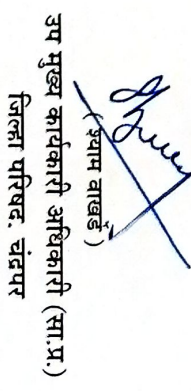 (श्याम वाखर्डे)
उप मुख्य कार्यकारी अधिकारी (सा.प्र.)
जिल्हा परिषद, चंद्रपूर